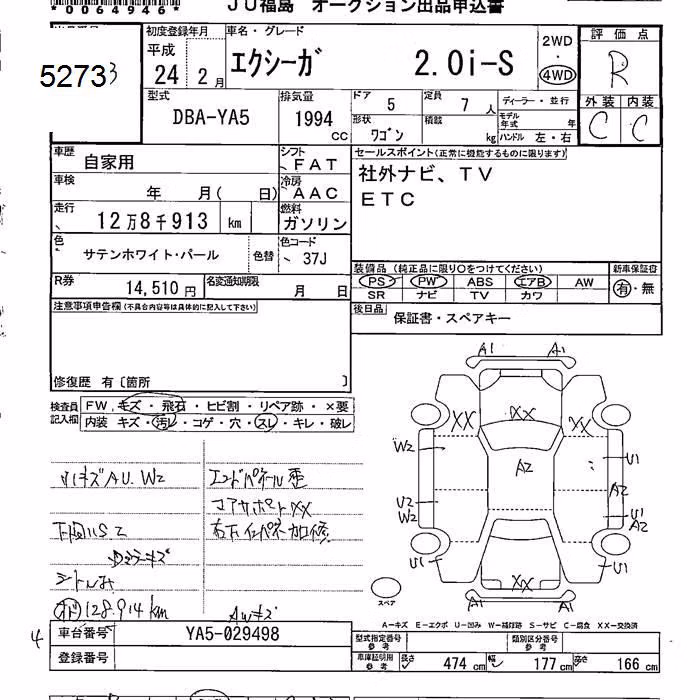 *0064946*
JU福島 オークション出品申込書
52733
初度登録年月
平成
24 2月
車名・グレード
エクシーガ 2.0i-S
2WD
・
4WD
評価点
R
外装 内装
C C
型式
DBA-YA5
排気量
1994
CC
ドア 5 定員 7人
形状 ワゴン 積載 kg
ディーラー・並行
モデル年式 年
ハンドル 左・右
車歴 自家用
シフト FAT
車検 年 月( 日)
冷房 AAC
走行 12万8千913 km
燃料 ガソリン
色 サテンホワイト・パール 色替
色コード 37J
R券 14,510円
名変通知期限 月 日
セールスポイント(正常に機能するものに限ります)
社外ナビ、TV
ETC
装備品(純正品に限り○をつけてください)
新車保証書
PS PW ABS エアB AW
SR ナビ TV カワ
有・無
後日品 保証書・スペアキー
注意事項申告欄(不具合内容等は具体的に記入して下さい)
修復歴 有〔箇所 〕
検査員記入欄
FW,キズ・飛石・ヒビ割・リペア跡・×要
内装 キズ・汚レ・コゲ・穴・スレ・キレ・破レ
A1 A1
XX XX XX
W2 A2 U1
A2
U2 U1
W2 A2
U1 XX U1
A1 A1
スペア
エンドパネル歪
コアサポートXX
128914km
AWキズ
A-キズ E-エクボ U-凹み W-補修跡 S-サビ C-腐食 XX-交換済
車台番号 YA5-029498
登録番号
型式指定番号 参考
類別区分番号 参考
車庫証明用 参考 長さ 474cm 幅 177cm 高さ 166cm